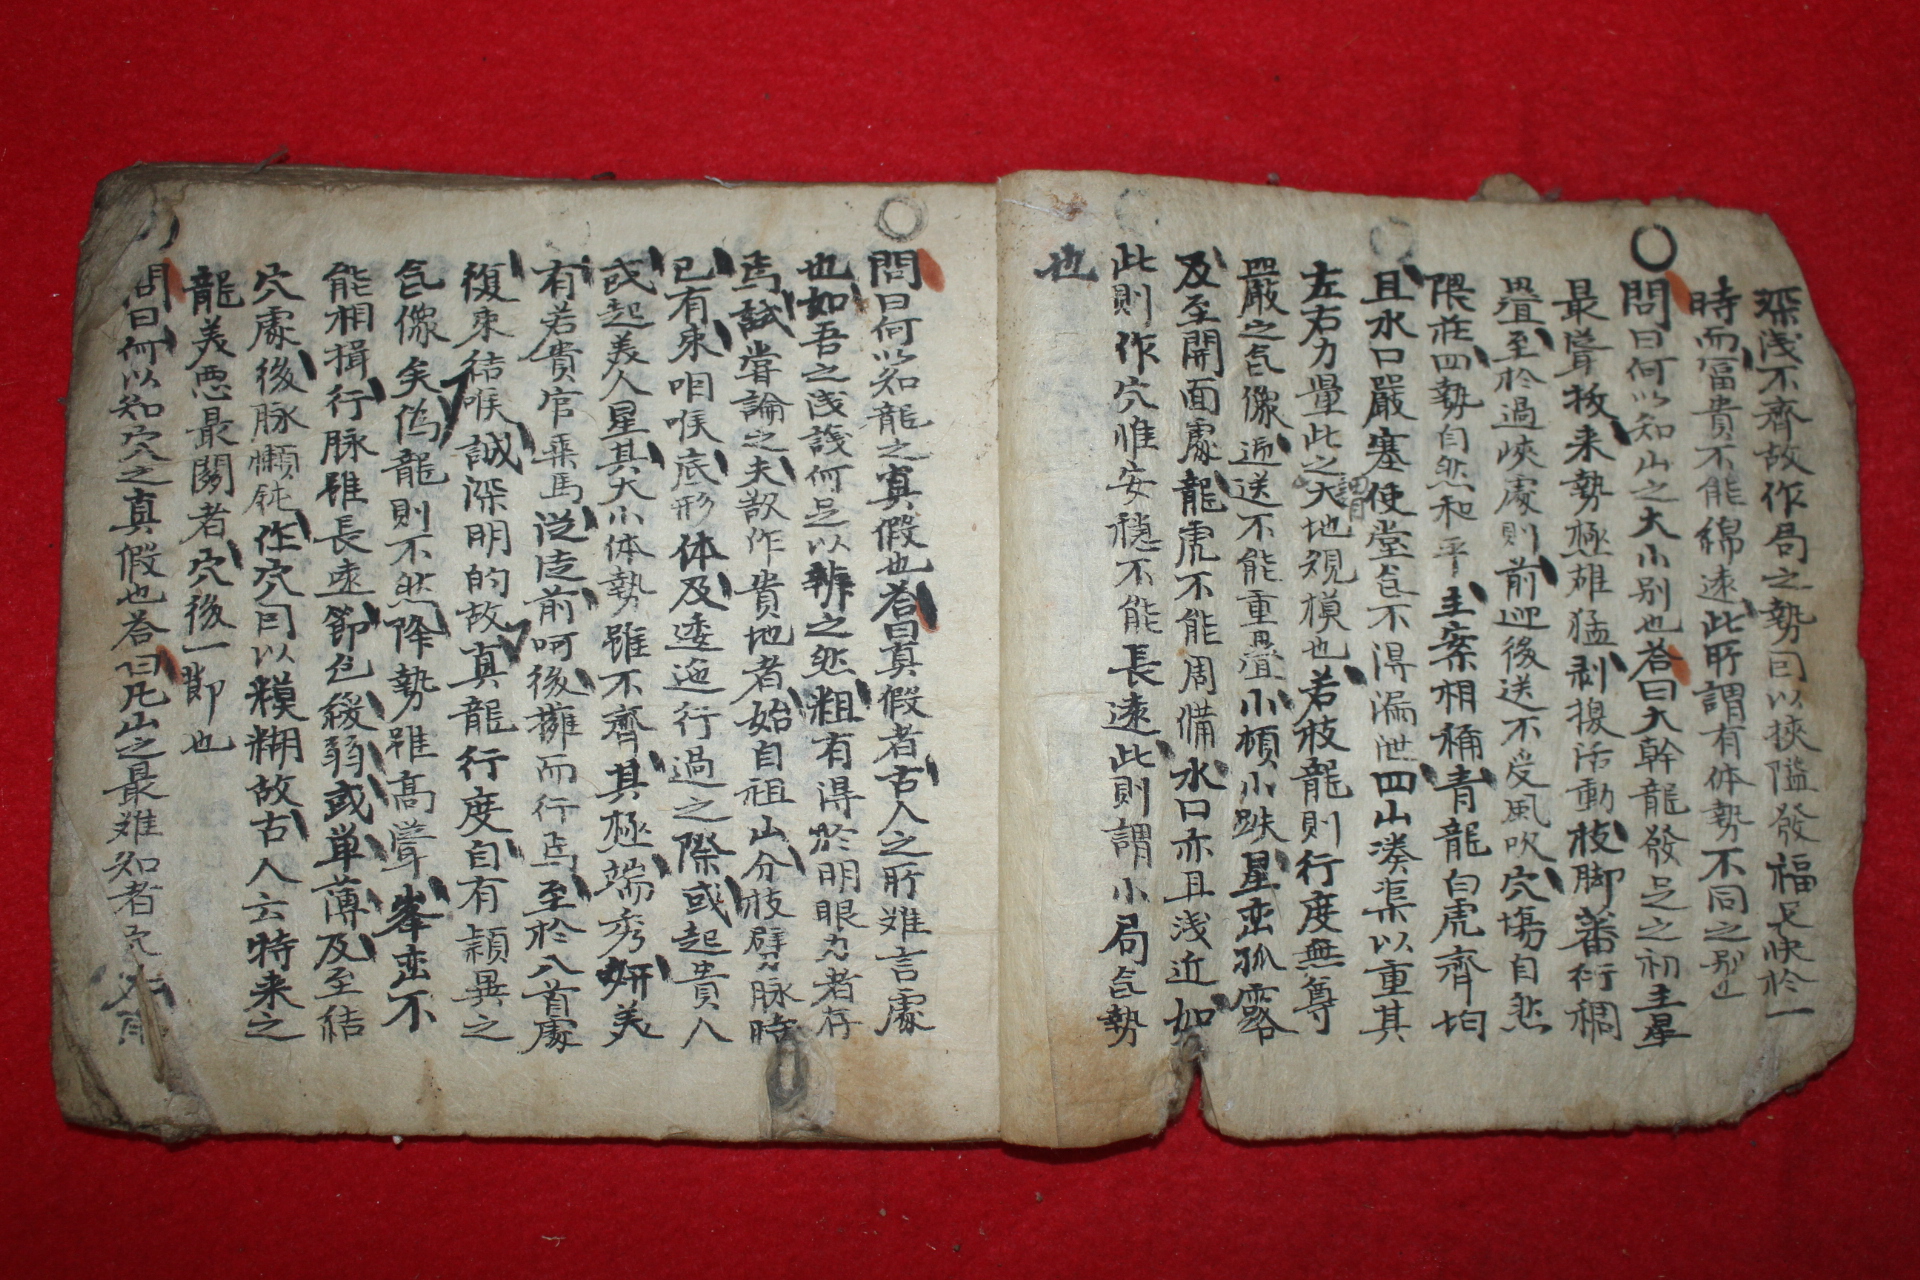 深浅不齊故作局之勢囙以挾隘發福長快於一
時而冨貴不能綿遠此所謂有体勢不同之别也
問曰何以知山之大小别也荅曰大幹龍發足之初主星
最聳拔来勢極雄猛剥換活動枝脚蕃衍稠
疊至於過峽處則前迎後送不受風吹穴塲自然
隈莊四勢自然和平主案相稱青龍白虎齊均
且水口嚴塞使堂氣不得漏泄四山湊渠以重其
左右力量此之謂大地䂓模也若枝龍則行度無尊
嚴之氣像遞送不能重疊小頓小跌星峦孤露
及至開面處龍虎不能周備水口亦且浅近如
此則作穴惟安穩不能長遠此則謂小局气勢
也
問曰何以知龍之真假也荅曰真假者古人之所难言處
也如吾之浅識何足以辨之然粗有得於明眼力者存
焉試甞論之夫欲作貴地者始自祖山分枝劈脉時
已有来咽喉底形体及逶迤行過之際或起貴人
或起美人星其大小体勢雖不齊其極端秀妍美
有若貴官乗馬從徒前呵後擁而行焉至於入首處
復来結喉誠深明的故真龍行度自有頴異之
氣像矣偽龍則不然降勢雖高聳峯峦不
能相揖行脉雖長遠節包緩弱或单薄及至結
穴處後脉懶鈍作穴囙以糢糊故古人云特来之
龍美悪最關者穴後一節也
問曰何以知穴之真假也荅曰凡山之最难知者穴